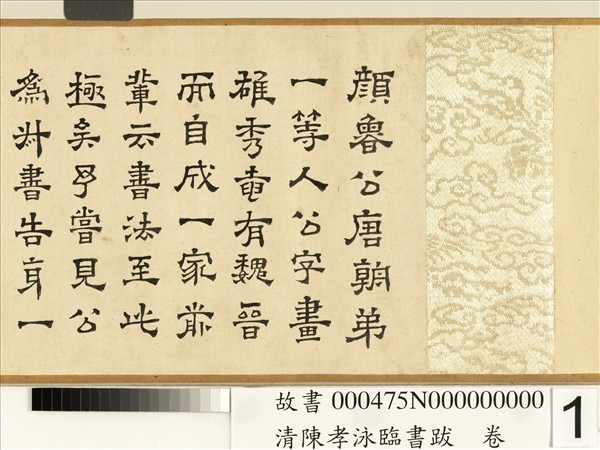 顏魯公唐朝弟
一等人公字畫
雄秀奄有魏晉
而自成一家前
輩云書法至此
極矣予嘗見公
為叔書告身一
故書 000475N000000000
清陳孝泳臨書跋 卷
1